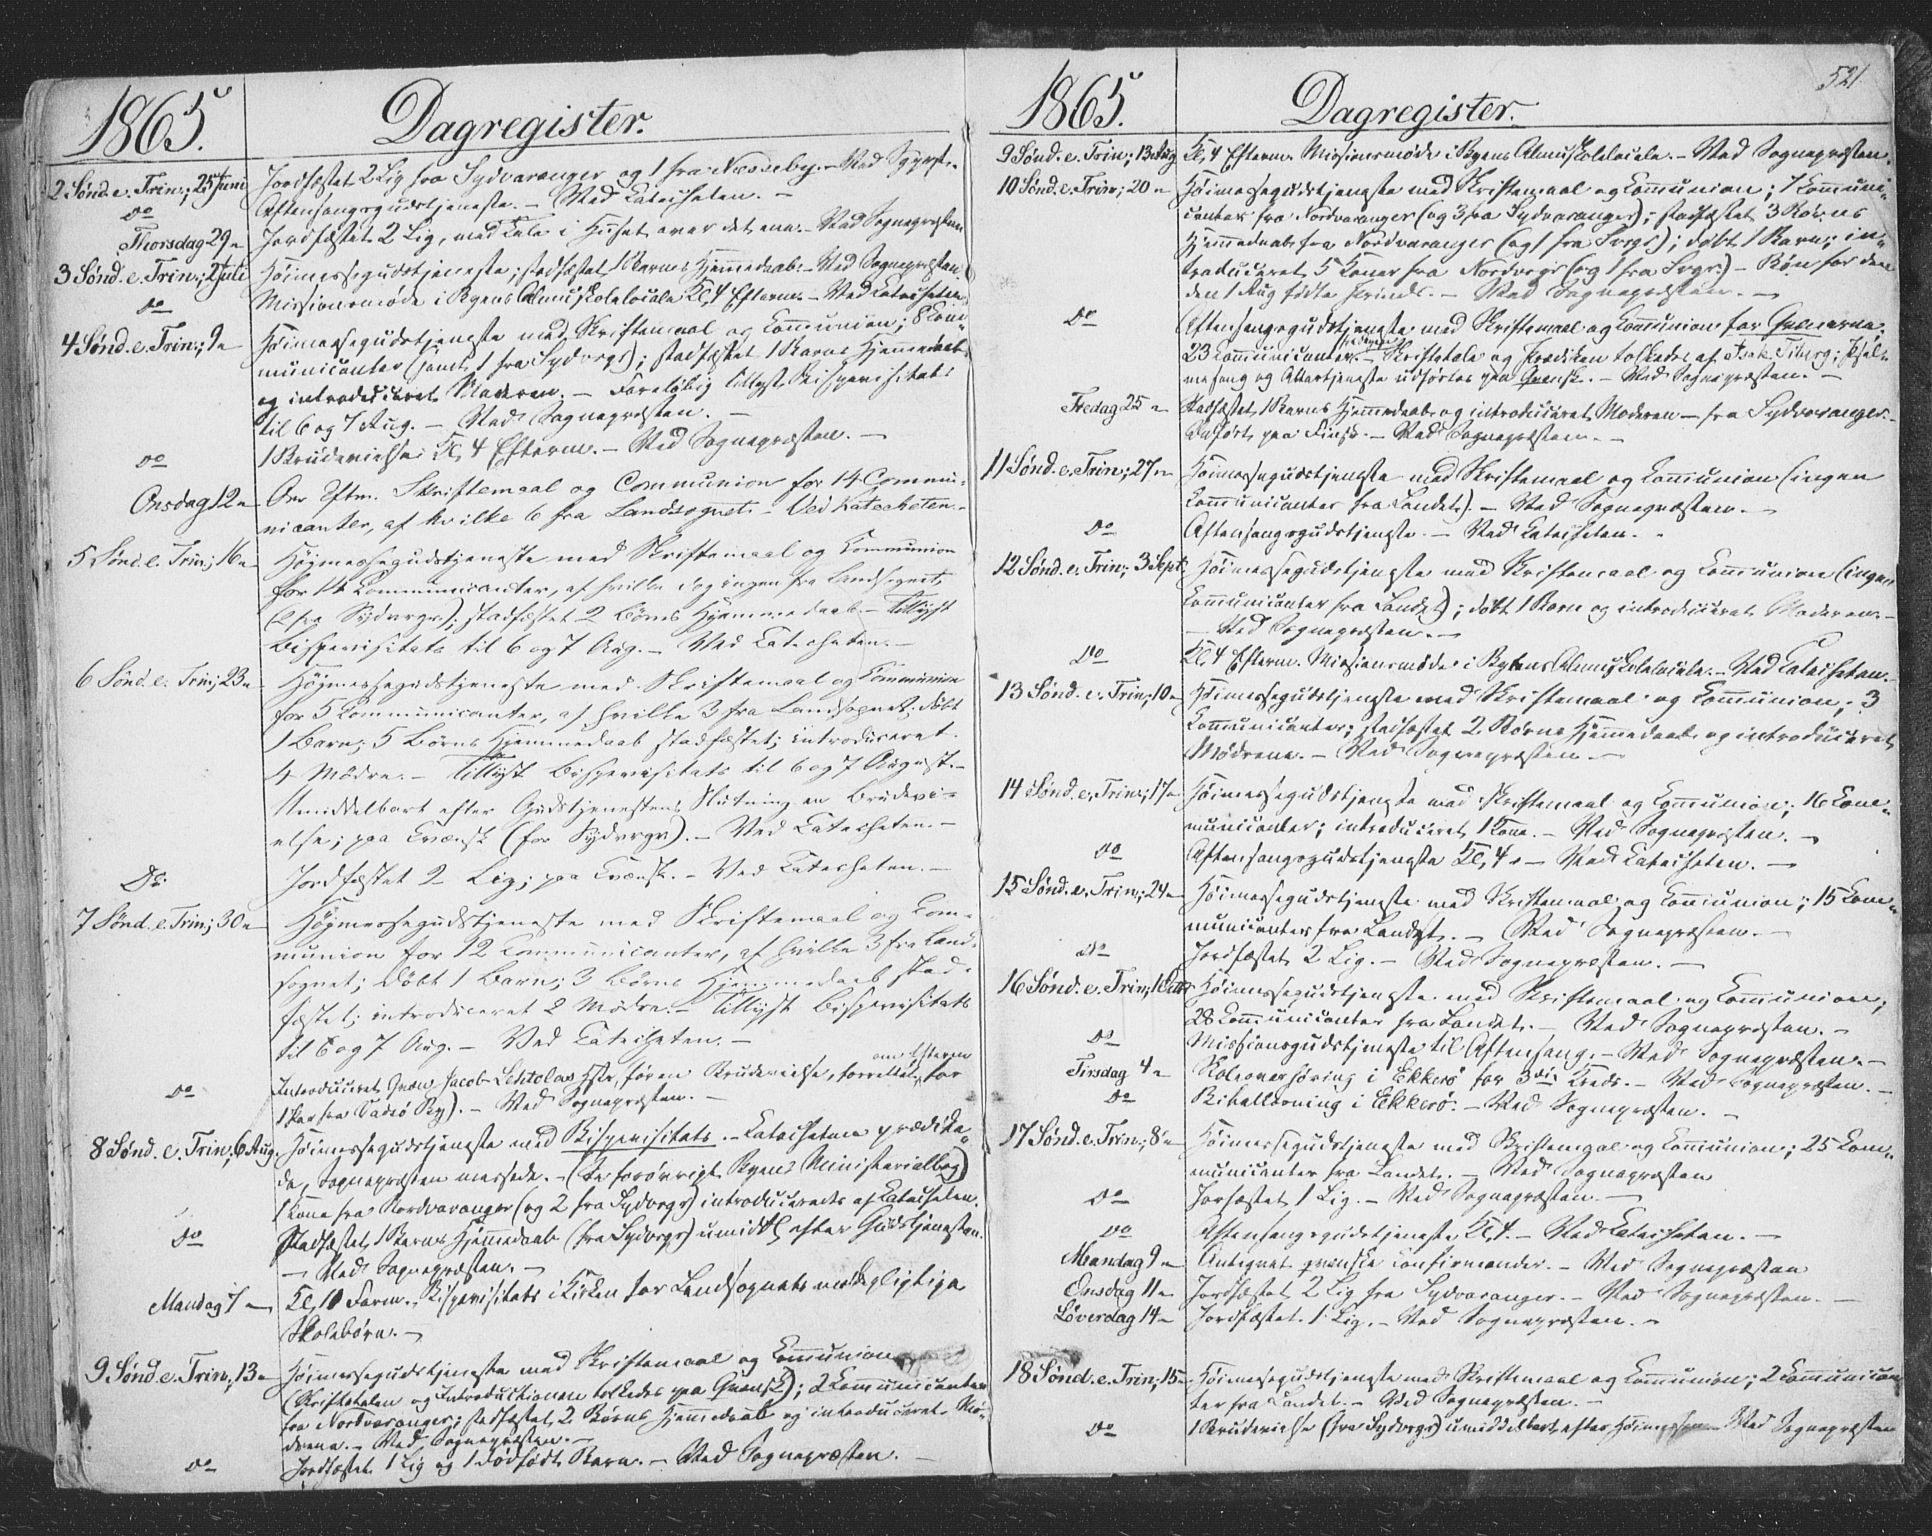 1865.
Dagregister.
2 Sønd. e. Trin; 25 Juni Jordfæstet 2 Lig fra Sydvaranger og 1 fra Næsseby. - Ved Sgpr.
do Aftensangsgudstjeneste. - Ved Katecheten. -
Thorsdag 29 - Jordfæstet 2 Lig, med Tale i Huset over det ene. - Ved Sognepræsten
3 Sønd. e. Trin; 2 Juli Høimessegudstjeneste; stadfæstet 1 Barns Hjemmedaab. - Ved Sognepræsten.
do Missionsmøde i Byens Almuskolelocale Kl. 4 Efterm. - Ved Katecheten
4 Sønd. e. Trin; 9 - Høimessegudstjeneste med Skriftemaal og Communion; 8 Com-
municanter (samt 1 fra Sydvrgr); stadfæstet 1 Barns Hjemmedaab
og introduceret Moderen. - Foreløbig tillyst Bispevisitats
til 6 og 7 Aug. - Ved Sognepræsten. -
do 1 Brudevielse Kl. 4 Efterm. - Ved Sognepræsten. -
Onsdag 12 - Eftm. Skriftemaal og Communion for 14 Commu-
nicanter, af hvilke 6 fra Landsognet. - Ved Katecheten.
5 Sønd. e. Trin; 16 - Høymessegudstjeneste med Skriftemaal og Kommunion
for 14 Kommunicanter, af hvilke dog ingen fra Landsognet,
(2 fra Sydvrgr); stadfæstet 2 Børns Hjemmedaab. - Tillyst
Bispevisitats til 6 og 7 Aug. - Ved Katecheten. -
6 Sønd. e. Trin; 23 - Høymessegudstjeneste med Skriftemaal og Kommunion
for 5 Kommunicanter, af hvilke 3 fra Landsognet; døbt
1 Barn; 5 Børns Hjemmedaab stadfæstet; introduceret
4 Mødre. - Tillyst Bispevisitats til 6 og 7 August. -
Umiddelbart efter Gudstjenestens Slutning en Brudevi-
else; paa Kvænsk (for Sydvrgr). - Ved Katecheten. -
Do. Jordfæstet 2 Lig; paa Kvænsk. - Ved Katecheten. -
7 Sønd. e. Trin; 30 - Høymessegudstjeneste med Skriftemaal og Kom-
munion for 12 Kommunicanter, af hvilke 3 fra Land-
sognet; døbt 1 Barn; 3 Børns Hjemmedaab stad-
fæstet; introduceret 2 Mødre. - Tillyst Bispevisitats
til 6 og 7 Aug. - Ved Katecheten. -
om Efterm
do Introduceret Qvæn Jacob Lehtolas Hstr, før en Brudevielse, forrettet for
1 Par fra Vadsø By). - Ved Sognepræsten. -
8 Sønd. e. Trin; 6 Aug. Høimessegudstjeneste med Bispevisitats. - Katecheten prædike-
de, Sognepræsten messede. - (Se forøvrigt Byens Ministerialbog)
1 Kone fra Nordvaranger (og 2 fra Sydvrgr) introduceredes af Katecheten.
do Stadfæstet 1 Barns Hjemmedaab (fra Sydvrgr) umidl. efter Gudstjenesten.
- Ved Sognepræsten. -
Mandag 7 - Kl. 10 Form. Bispevisitats i Kirken for Landsognets mødepligtige
Skolebørn. -
9 Sønd. e. Trin; 13 - Høimessegudstjeneste med Skriftemaal og Communion
(Skriftetalen og Introductionen tolkedes paa Qvænsk); 2 Communicanter
fra Nordvaranger; stadfæstet 2 Børns Hjemmedaab og introduceret Mø-
drene. - Ved Sognepræsten. -
do Jordfæstet 1 Lig og 1 dødfødt Barn. - Ved Sognepræsten. -
521
1865.
Dagregister.
9 Sønd. e. Trin; 13 Aug Kl. 4 Efterm. Missionsmøde i Byens Almuskolelocale. - Ved Sognepræsten.
10 Sønd. e. Trin; 20 - Høimessegudstjeneste med Skriftemaal og Communion; 7 Communi-
canter fra Nordvaranger (og 3 fra Sydvaranger); stadfæstet 3 Børns
Hjemmedaab fra Nordvaranger (og 1 fra Svrgr); døbt 1 Barn; in-
troduceret 5 Koner fra Nordvrgr (og 1 fra Svrgr.) - Bøn for den
den 1 Aug fødte Prinds. - Ved Sognepræsten. -
Do Aftensangsgudstjeneste med Skriftemaal og Communion for Qvænerne;
23 Communicanter. - Skriftetale og Prædiken tolkedes af Isak Tiberg; Psal-
mesang og Altertjeneste udførtes paa Qvænsk. - Ved Sognepræsten. -
Fredag 25 - Stadfæstet 1 Barns Hjemmedaab og introduceret Moderen - fra Sydvaranger.
Udført paa Finsk. - Ved Sognepræsten. -
11 Sønd. e. Trin; 27 - Høimessegudstjeneste med Skriftemaal og Communion (ingen
Communicanter fra Landet). - Ved Sognepræsten. -
do Aftensangsgudstjeneste. - Ved Katecheten. -
12 Sønd. e. Trin; 3 Sept. Høimessegudstjeneste med Skriftemaal og Communion (ingen
Communicanter fra Landet); døbt 1 Barn og introduceret Moderen. -
- Ved Sognepræsten. -
Do Kl. 4 Efterm. Missionsmøde i Byens Almuskolelocale. - Ved Katecheten. -
13 Sønd. e. Trin; 10 - Høimessegudstjeneste med Skriftemaal og Communion; 3
Communicanter; stadfæstet 2 Børns Hjemmedaab og introduceret
Mødrene. - Ved Sognepræsten. -
14 Sønd. e. Trin; 17 - Høimessegudstjeneste med Skriftemaal og Communion; 16 Com-
municanter; introduceret 1 Kone. - Ved Sognepræsten. -
do Aftensangsgudstjeneste Kl. 4. - Ved Katecheten. -
15 Sønd. e. Trin; 24 - Høimessegudstjeneste med Skriftemaal og Communion; 15 Com-
municanter fra Landet. - Ved Sognepræsten. -
do Jordfæstet 2 Lig. - Ved Sognepræsten. -
16 Sønd. e. Trin; 1 Octbr Høimessegudstjeneste med Skriftemaal og Communion;
28 Communicanter fra Landet. - Ved Sognepræsten. -
do Missionsgudstjeneste til Aftensang. - Ved Sognepræsten. -
Tirsdag 4 - Skoleoverhøring i Ekkerø for 3die Kreds. - Ved Sognepræsten. -
do Bibellæsning i Ekkerø. - Ved Sognepræsten. -
17 Sønd. e. Trin; 8 - Høimessegudstjeneste med Skriftemaal og Communion; 25 Com-
municanter fra Landet. - Ved Sognepræsten
do Jorfæstet 1 Lig. - Ved Sognepræsten. -
do Aftensangsgudstjeneste Kl. 4. - Ved Katecheten. -
Mandag 9 - Antegnet qvænske Confirmander. - Ved Sognepræsten
Onsdag 11 - Jordfæstet 2 Lig fra Sydvaranger. - Ved Sognepræsten. -
Løverdag 14 - Jordfæstet 1 Lig. - Ved Sognepræsten. -
18 Sønd. e. Trin; 15 - Høimessegudstjeneste med Skriftemaal og Communion; 2 Communican-
ter fra Landet. - Ved Sognepræsten. -
do 1 Brudevielse (fra Sydvrgr) umiddelbart efter Høimessen - Ved Sognepræsten